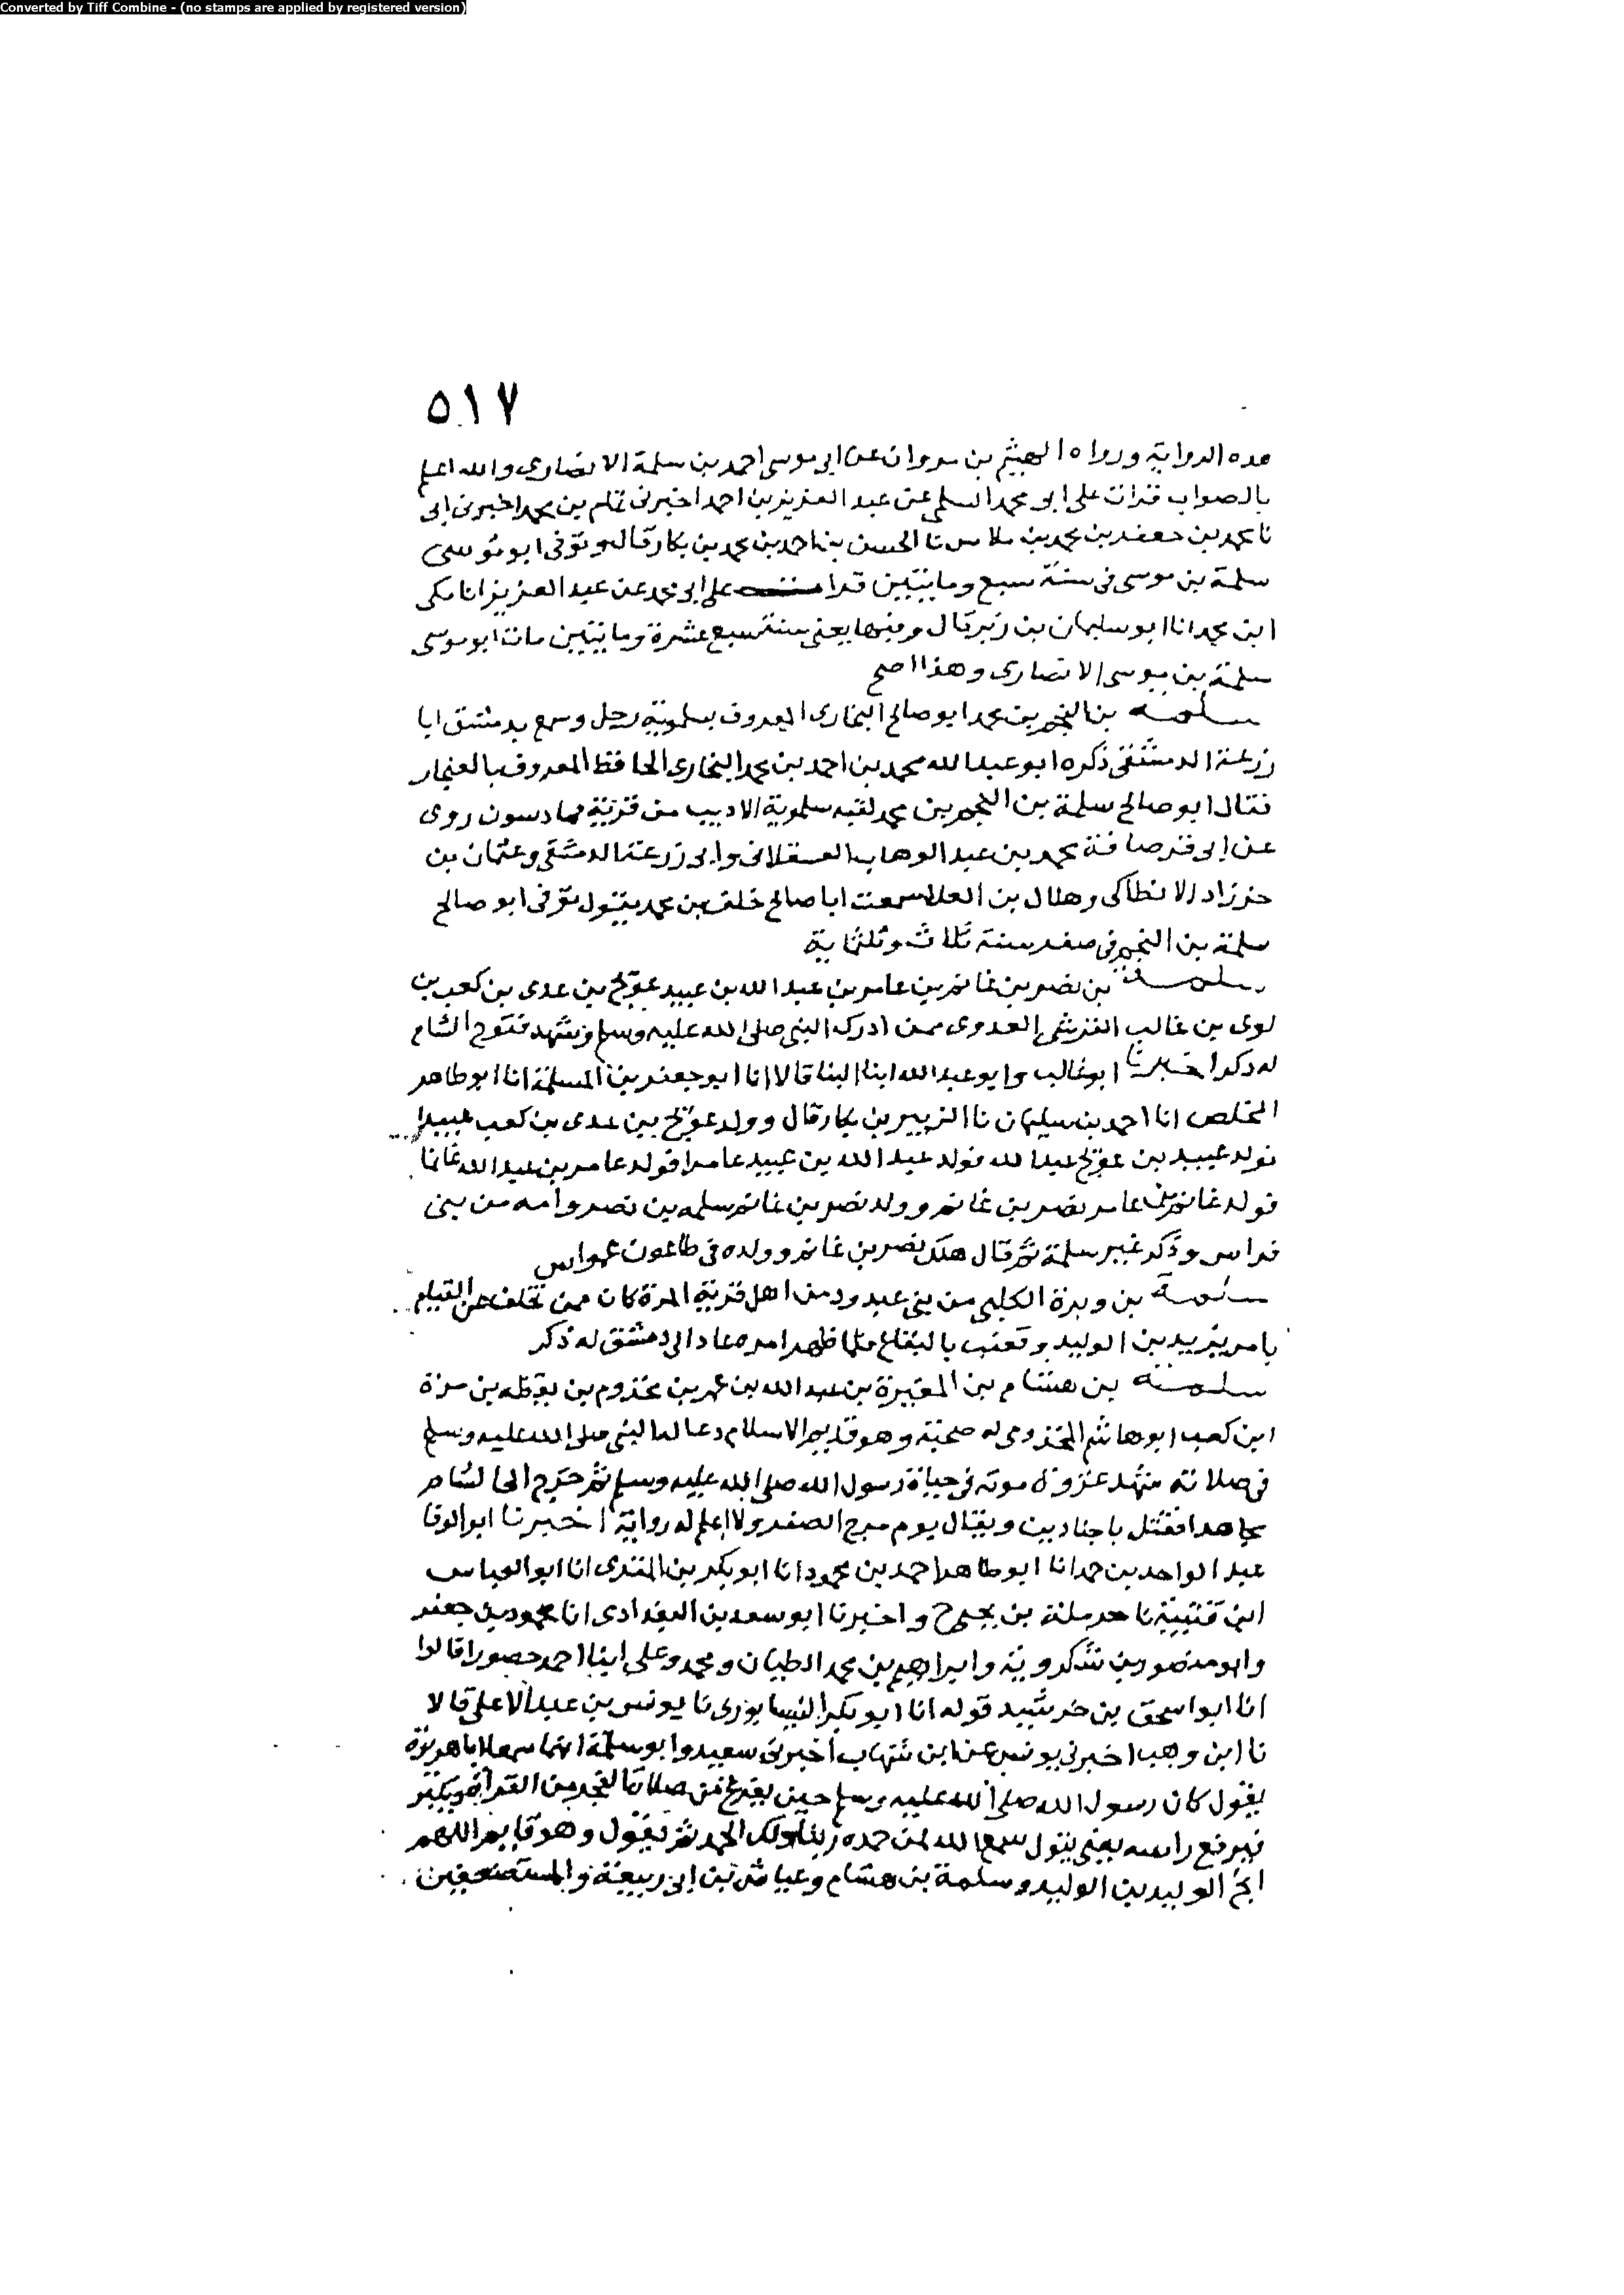 Converted by Tiff Combine - (no stamps are applied by registered version)
٥١٧
هذه الرواية ورواه الهيثم بن مروان عن ابي موسى احمد بن سلمة الانصاري والله اعلم
بالصواب قرات على ابو محمد السلمي عن عبد العزيز بن احمد اخبرني تمام بن محمد اخبرني ابي
نا محمد بن جعفر بن محمد بن ملاس نا الحسن بن احمد بن محمد بن بكار قال وتوفي ابو موسى
سلمة بن موسى في سنة سبع ومايتين قرات على ابي محمد عن عبد العزيز انا مكي
ابن محمد انا ابو سليمان بن زبر قال وفيها يعني سنة سبع عشرة ومايتين مات ابو موسى
سلمة بن موسى الانصاري وهذا اصح
سلمة بن النجم بن محمد ابو صالح البخاري المعروف بسلموية رحل وسمع بدمشق ابا
زرعة الدمشقي ذكره ابو عبد الله محمد بن احمد بن محمد البخاري الحافظ المعروف بالغنجار
فقال ابو صالح سلمة بن النجم بن محمد لقبه سلموية الاديب من قرية روى
عن ابي قرصافة محمد بن عبد الوهاب العسقلاني وابي زرعة الدمشقي وعثمان بن
خرزاد الانطاكي وهلال بن العلا سمعت ابا صالح خلف بن محمد يقول توفي ابو صالح
سلمة بن النجم في صفر سنة ثلاث وثلثماية
سلمة بن نصر بن غانم بن عامر بن عبد الله بن عبيد عويج بن عدى بن كعب بن
لوى بن غالب القرشي العدوى ممن ادرك النبي صلى الله عليه وسلم وشهد فتوح الشام
له ذكر اخبرنا ابو غالب وابو عبد الله ابنا البنا قالا انا ابو جعفر بن المسلمة انا ابو طاهر
المخلص انا احمد بن سليمان نا الزبير بن بكار قال وولد عويج بن عدى بن كعب عبيدا
فولد عبيد بن عويج عبد الله فولد عبد الله بن عبيد عامرا فولد عامر بن عبد الله غانما
فولد غانم بن عامر نصر بن غانم وولد نصر بن غانم سلمه بن نصر وامه من بني
فراس وذكر غير سلمة ثم قال هلك نصر بن غانم وولده في طاعون عمواس
سلمة بن وبرة الكلبي من بني عبد ود من اهل قرية المزة كان ممن تخلف عن القيام
بامر يزيد بن الوليد بالبقاع فلما ظهر امره عاد الى دمشق له ذكر
سلمة بن هشام بن المغيرة بن عبد الله بن عمر بن مخزوم بن يقظه بن مرة
ابن كعب ابو هاشم المخزومي له صحبة وهو قديم الاسلام دعا له النبي صلى الله عليه وسلم
في صلاته شهد غزوة موته في حياة رسول الله صلى الله عليه وسلم ثم خرج الى الشام
مجاهدا فقتل باجنادين ويقال يوم مرج الصفر ولا اعلم له رواية اخبرنا ابو الوفا
عبد الواحد بن حمد انا ابو طاهر احمد بن محمود انا ابو بكر بن المقرى انا ابو العباس
ابن قتيبة نا حرملة بن يحيى ح واخبرنا ابو سعد بن البغدادى انا محمود بن جعفر
وابو منصور بن شكروية وابراهيم بن محمد الطيان ومحمد وعلي ابنا احمد حضورا قالوا
انا ابو اسحق بن خرشيد قوله انا ابو بكر النيسابورى نا يونس بن عبد الاعلى قالا
نا ابن وهب اخبرني يونس عن ابن شهاب اخبرني سعيد وابو سلمة انهما سمعا ابا هريرة
يقول كان رسول الله صلى الله عليه وسلم حين يفرغ من صلاة الفجر من القراة ويكبر
فيرفع راسه يعني يقول سمع الله لمن حمده ربنا ولك الحمد ثم يقول وهو قايم اللهم
انج الوليد بن الوليد وسلمة بن هشام وعياش بن ابي ربيعة والمستضعفين